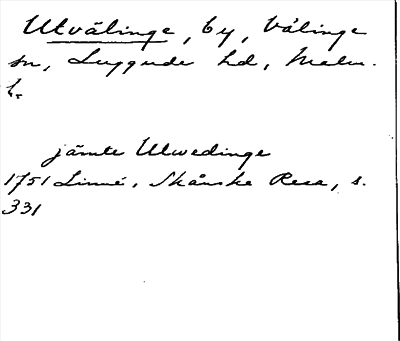 Utvälinge, by, Välinge
sn, Luggude hd, Malm.
l.
jämte Ulwedinge
1751 Linné, Skånske Resa, s.
331